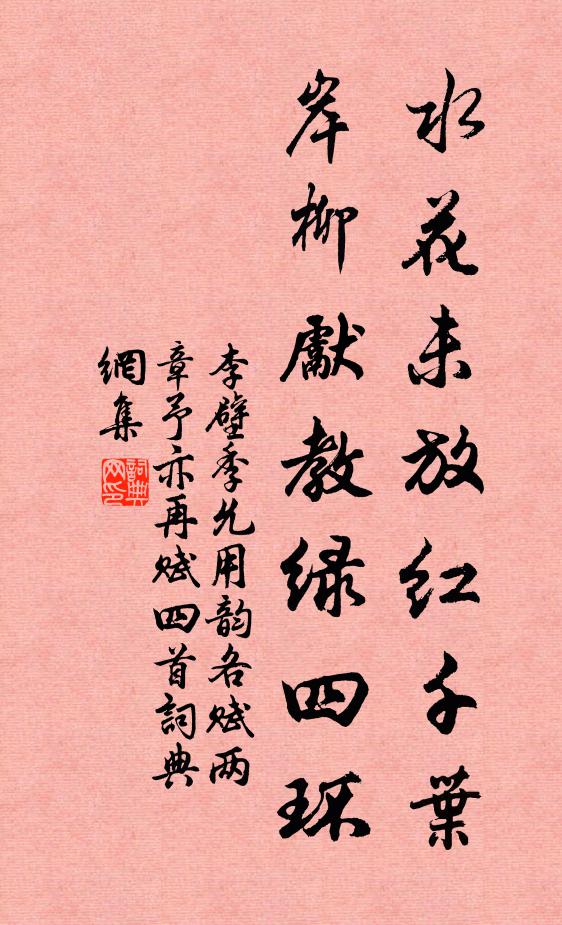 水花未放红千葉
岸柳獻教绿四环
李壁季允用韵各赋两
章予亦再赋四首詞典
網集
詞典
网印